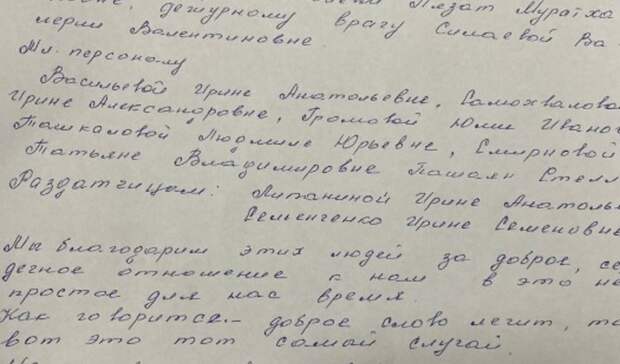 дежурному врачу Силаевой Ва-
лерии Валентиновне
Мл. персоналу
Васильевой Ирине Анатольевне, Самохвалово
Ирине Александровне, Громовой Юлии Ивано
Ташкаловой Людмиле Юрьевне, Смирновой
Татьяне Владимировне Пашаян Стелл
Раздатчицам: Литаниной Ирине Анатоль
Семенченко Ирине Семеновне
Мы благодарим этих людей за доброе, се
дечное отношение к нам в это не
простое для нас время.
Как говорится – доброе слово лечит, то
вот это тот самый случай.